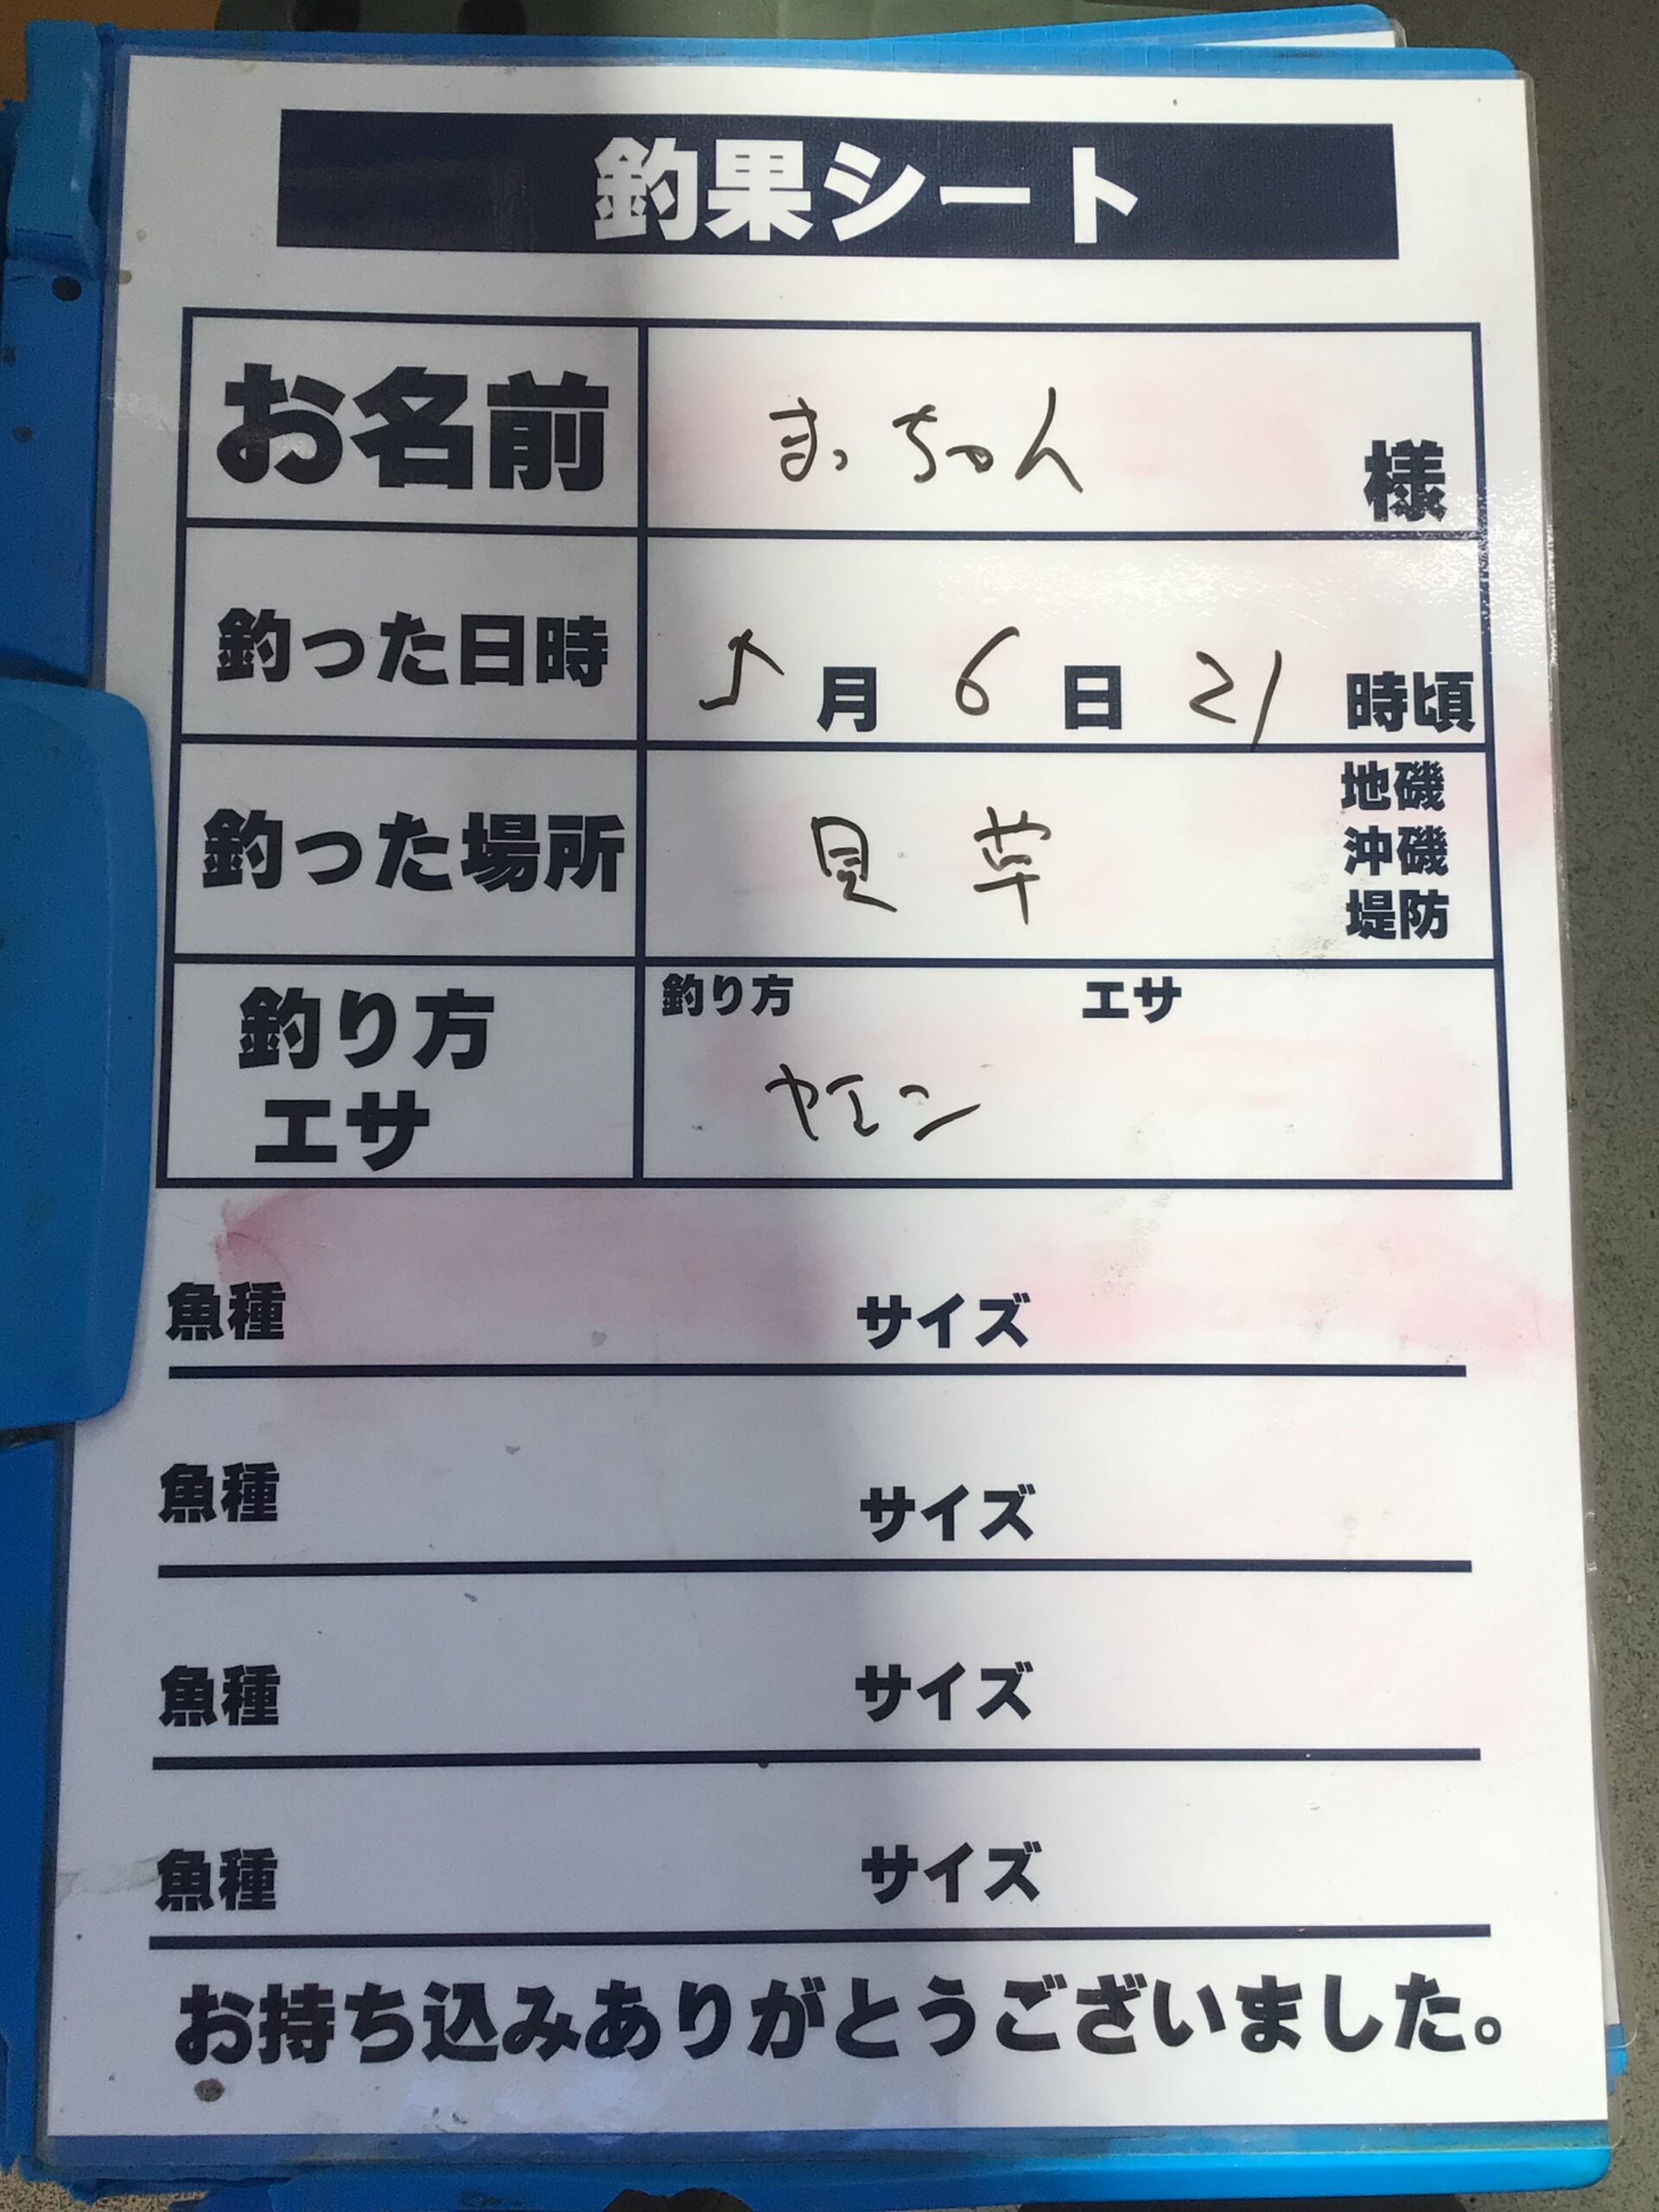 釣果シート
お名前 まっちゃん 様
釣った日時 5月6日21時頃
釣った場所 見草 地磯 沖磯 堤防
釣り方 エサ
釣り方 エサ
ヤエン
魚種 サイズ
魚種 サイズ
魚種 サイズ
魚種 サイズ
お持ち込みありがとうございました。